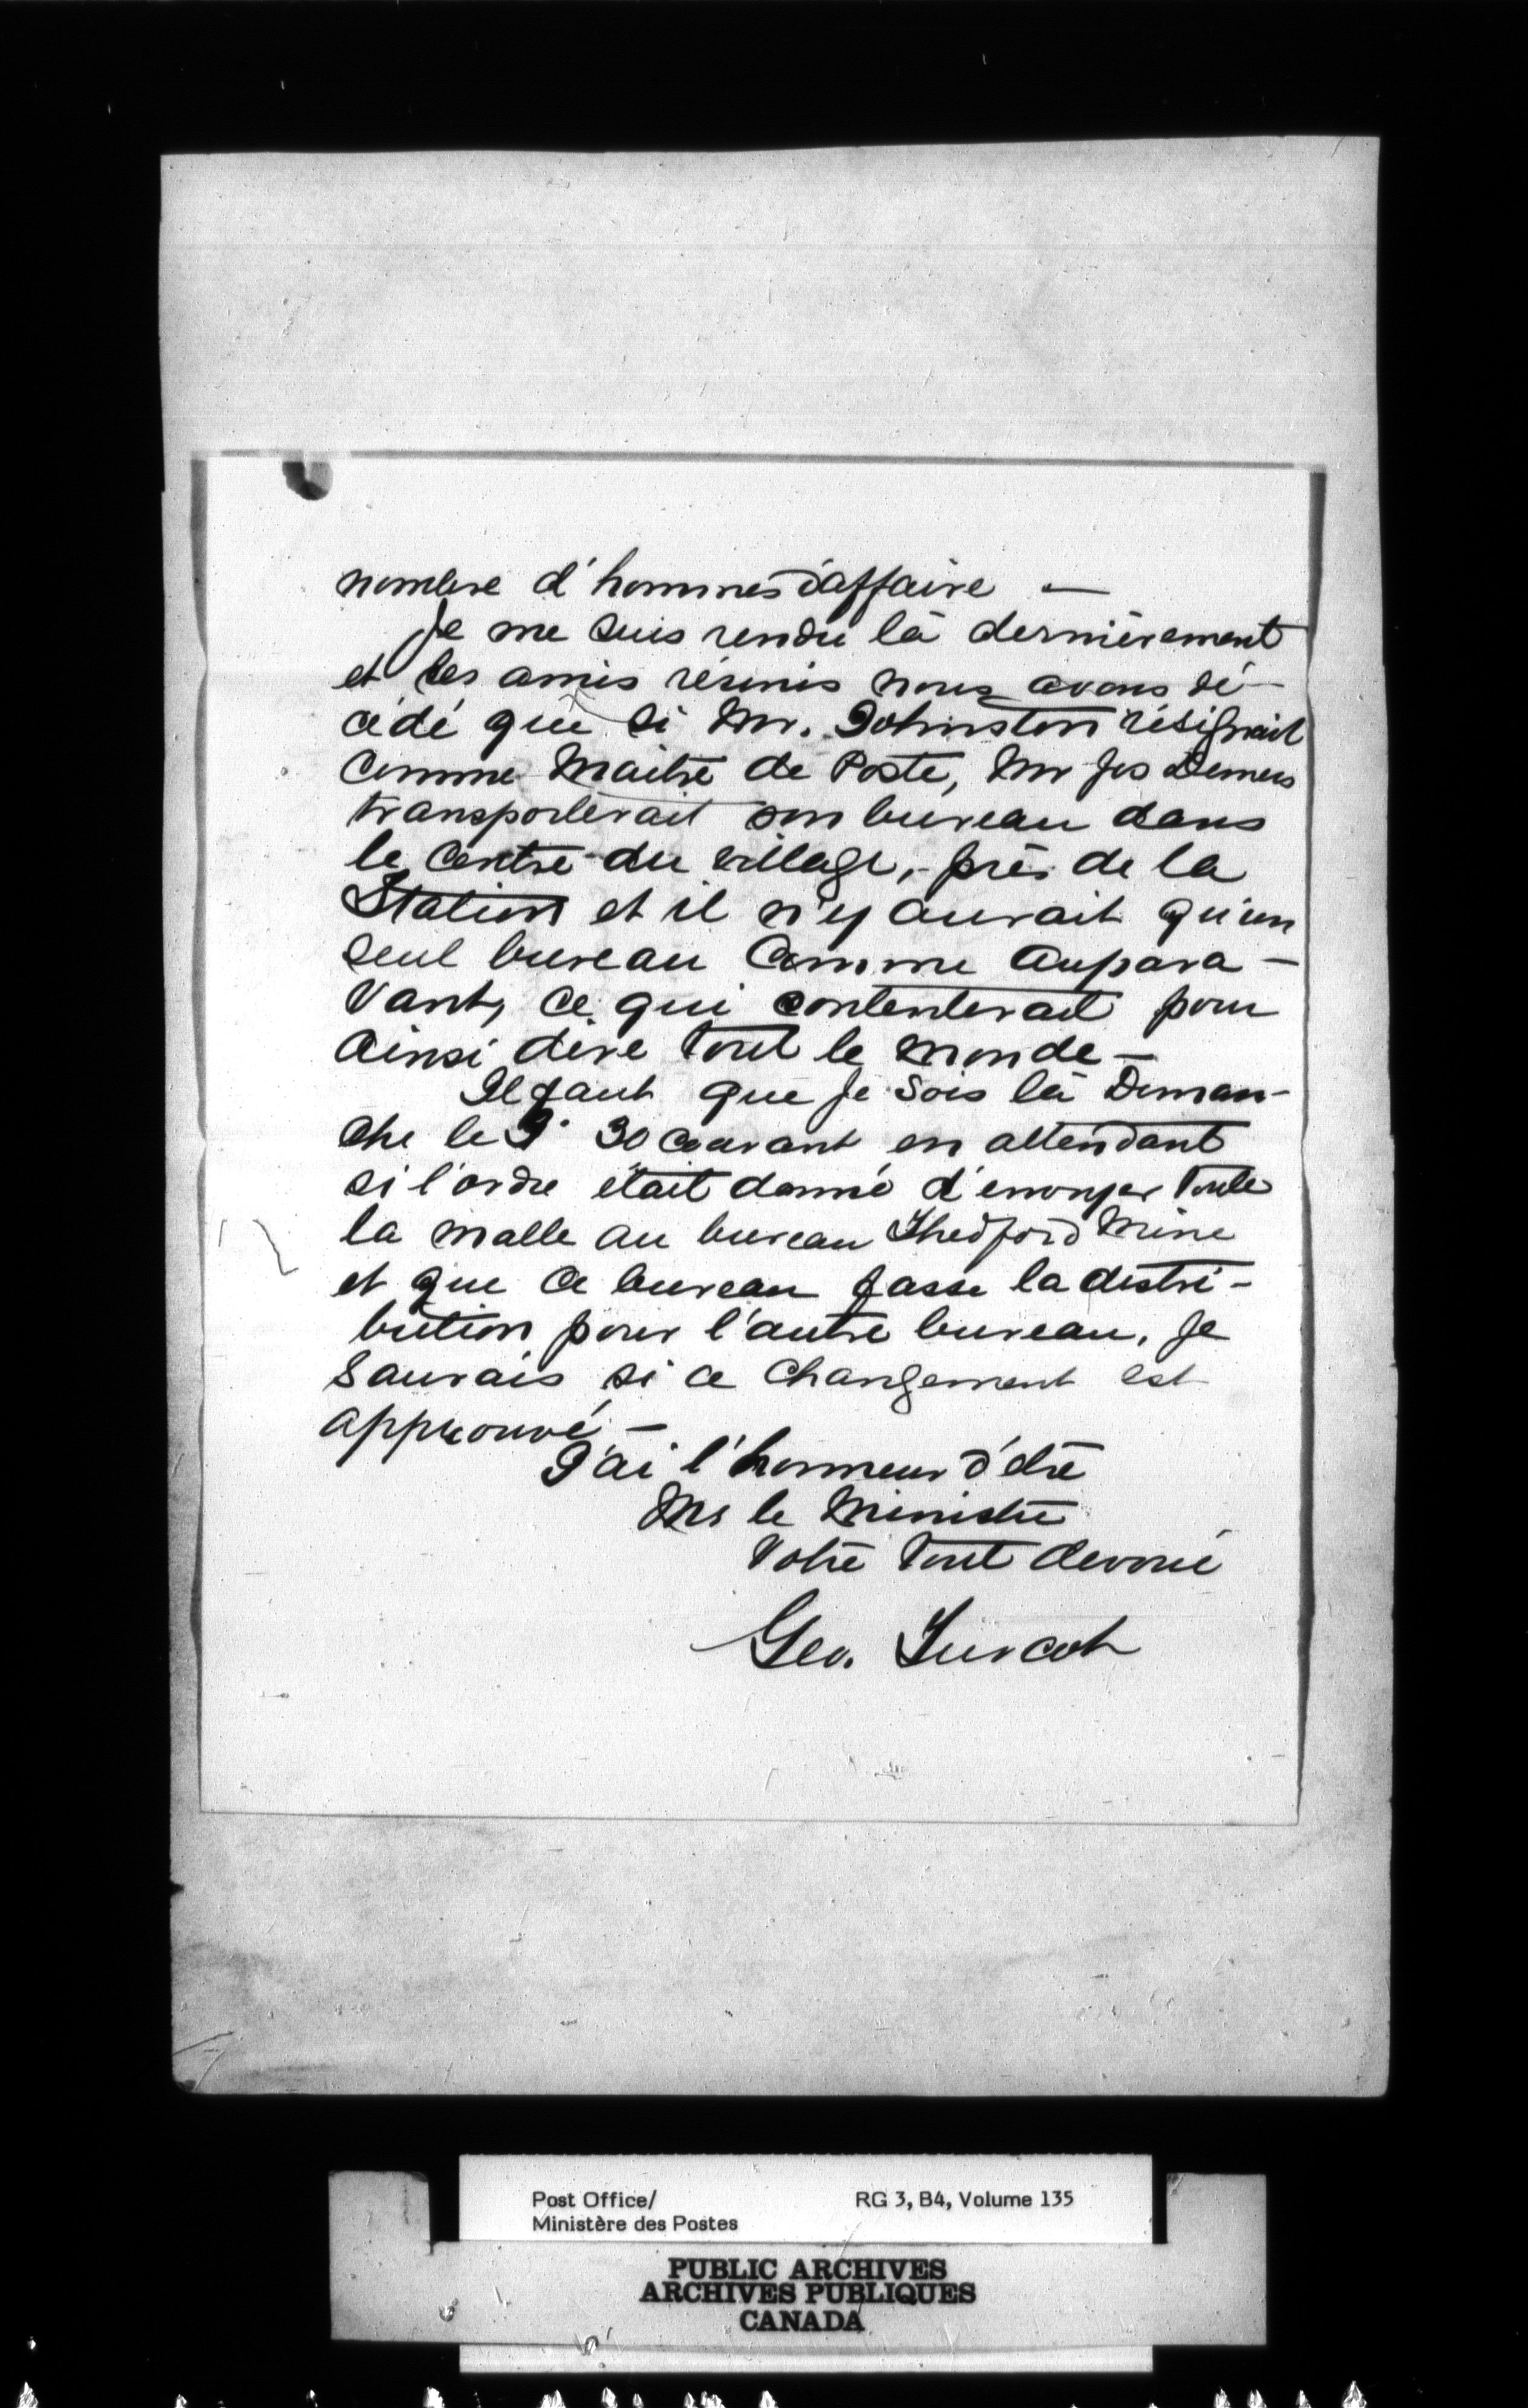 nombre d'hommes d'affaire —
Je me suis rendu là dernièrement
et les amis réunis nous avons dé-
cidé que si Mr. Johnston résignait
comme Maitre de Poste, Mr Jos Demers
transporterait son bureau dans
le centre du village, près de la
Station et il n'y aurait qu'un
seul bureau comme aupara-
vant, ce qui contenterait pour
ainsi dire tout le monde —
Il faut que je sois là Diman-
che le 30 courant en attendant
si l'ordre était donné d'envoyer toute
la malle au bureau Thedford Mine
et que ce bureau fasse la distri-
bution pour l'autre bureau. Je
saurais si ce changement est
approuvé —
J'ai l'honneur d'être
Mr le Ministre
Votre tout devoué
Geo. Turcot
Post Office/ RG 3, B4, Volume 135
Ministère des Postes
PUBLIC ARCHIVES
ARCHIVES PUBLIQUES
CANADA